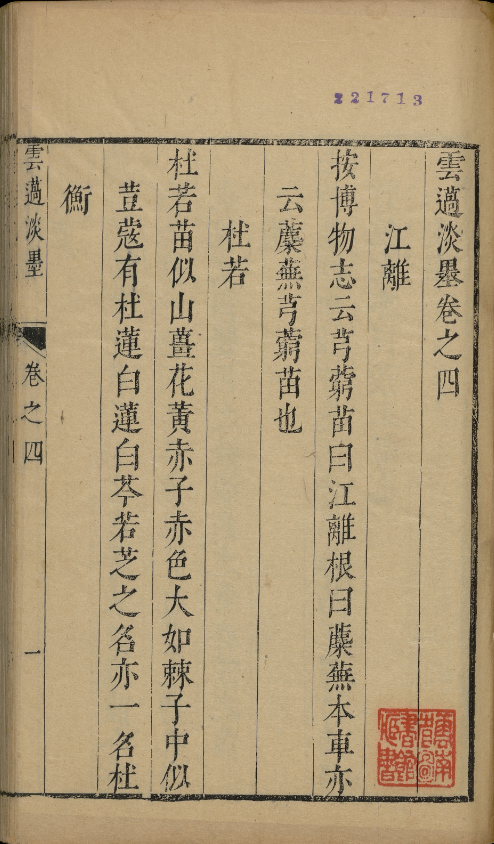 221713
雲薖淡墨卷之四
江離
按博物志云芎藭苗曰江離根曰蘪蕪本車亦
云蘪蕪芎藭苗也
杜若
杜若苗似山薑花黃赤子赤色大如棘子中似
荳蔻有杜蓮白蓮白芩若芝之名亦一名杜
衡
雲薖淡墨
卷之四
一